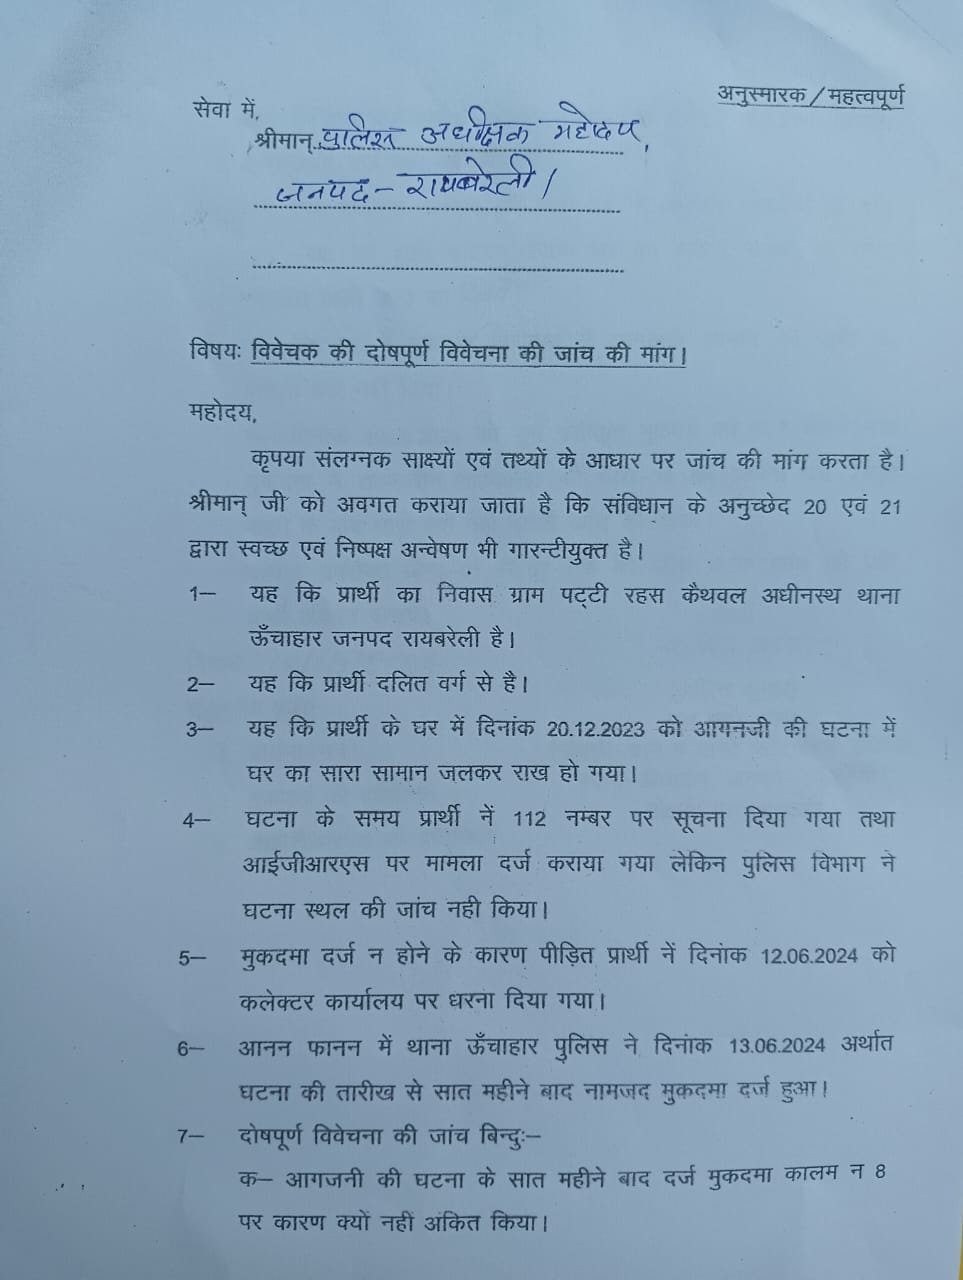 अनुस्मारक / महत्वपूर्ण
सेवा में,
श्रीमान् पुलिस अधीक्षक महोदय,
जनपद – रायबरेली।
विषयः विवेचक की दोषपूर्ण विवेचना की जांच की मांग।
महोदय,
कृपया संलग्नक साक्ष्यों एवं तथ्यों के आधार पर जांच की मांग करता है।
श्रीमान् जी को अवगत कराया जाता है कि संविधान के अनुच्छेद 20 एवं 21
द्वारा स्वच्छ एवं निष्पक्ष अन्वेषण भी गारन्टीयुक्त है।
1– यह कि प्रार्थी का निवास ग्राम पट्टी रहस कैथवल अधीनस्थ थाना
ऊँचाहार जनपद रायबरेली है।
2– यह कि प्रार्थी दलित वर्ग से है।
3– यह कि प्रार्थी के घर में दिनांक 20.12.2023 को आगनजी की घटना में
घर का सारा सामान जलकर राख हो गया।
4– घटना के समय प्रार्थी नें 112 नम्बर पर सूचना दिया गया तथा
आईजीआरएस पर मामला दर्ज कराया गया लेकिन पुलिस विभाग ने
घटना स्थल की जांच नही किया।
5– मुकदमा दर्ज न होने के कारण पीड़ित प्रार्थी नें दिनांक 12.06.2024 को
कलेक्टर कार्यालय पर धरना दिया गया।
6– आनन फानन में थाना ऊँचाहार पुलिस ने दिनांक 13.06.2024 अर्थात
घटना की तारीख से सात महीने बाद नामजद मुकदमा दर्ज हुआ।
7– दोषपूर्ण विवेचना की जांच बिन्दुः–
क– आगजनी की घटना के सात महीने बाद दर्ज मुकदमा कालम न 8
पर कारण क्यों नहीं अंकित किया।